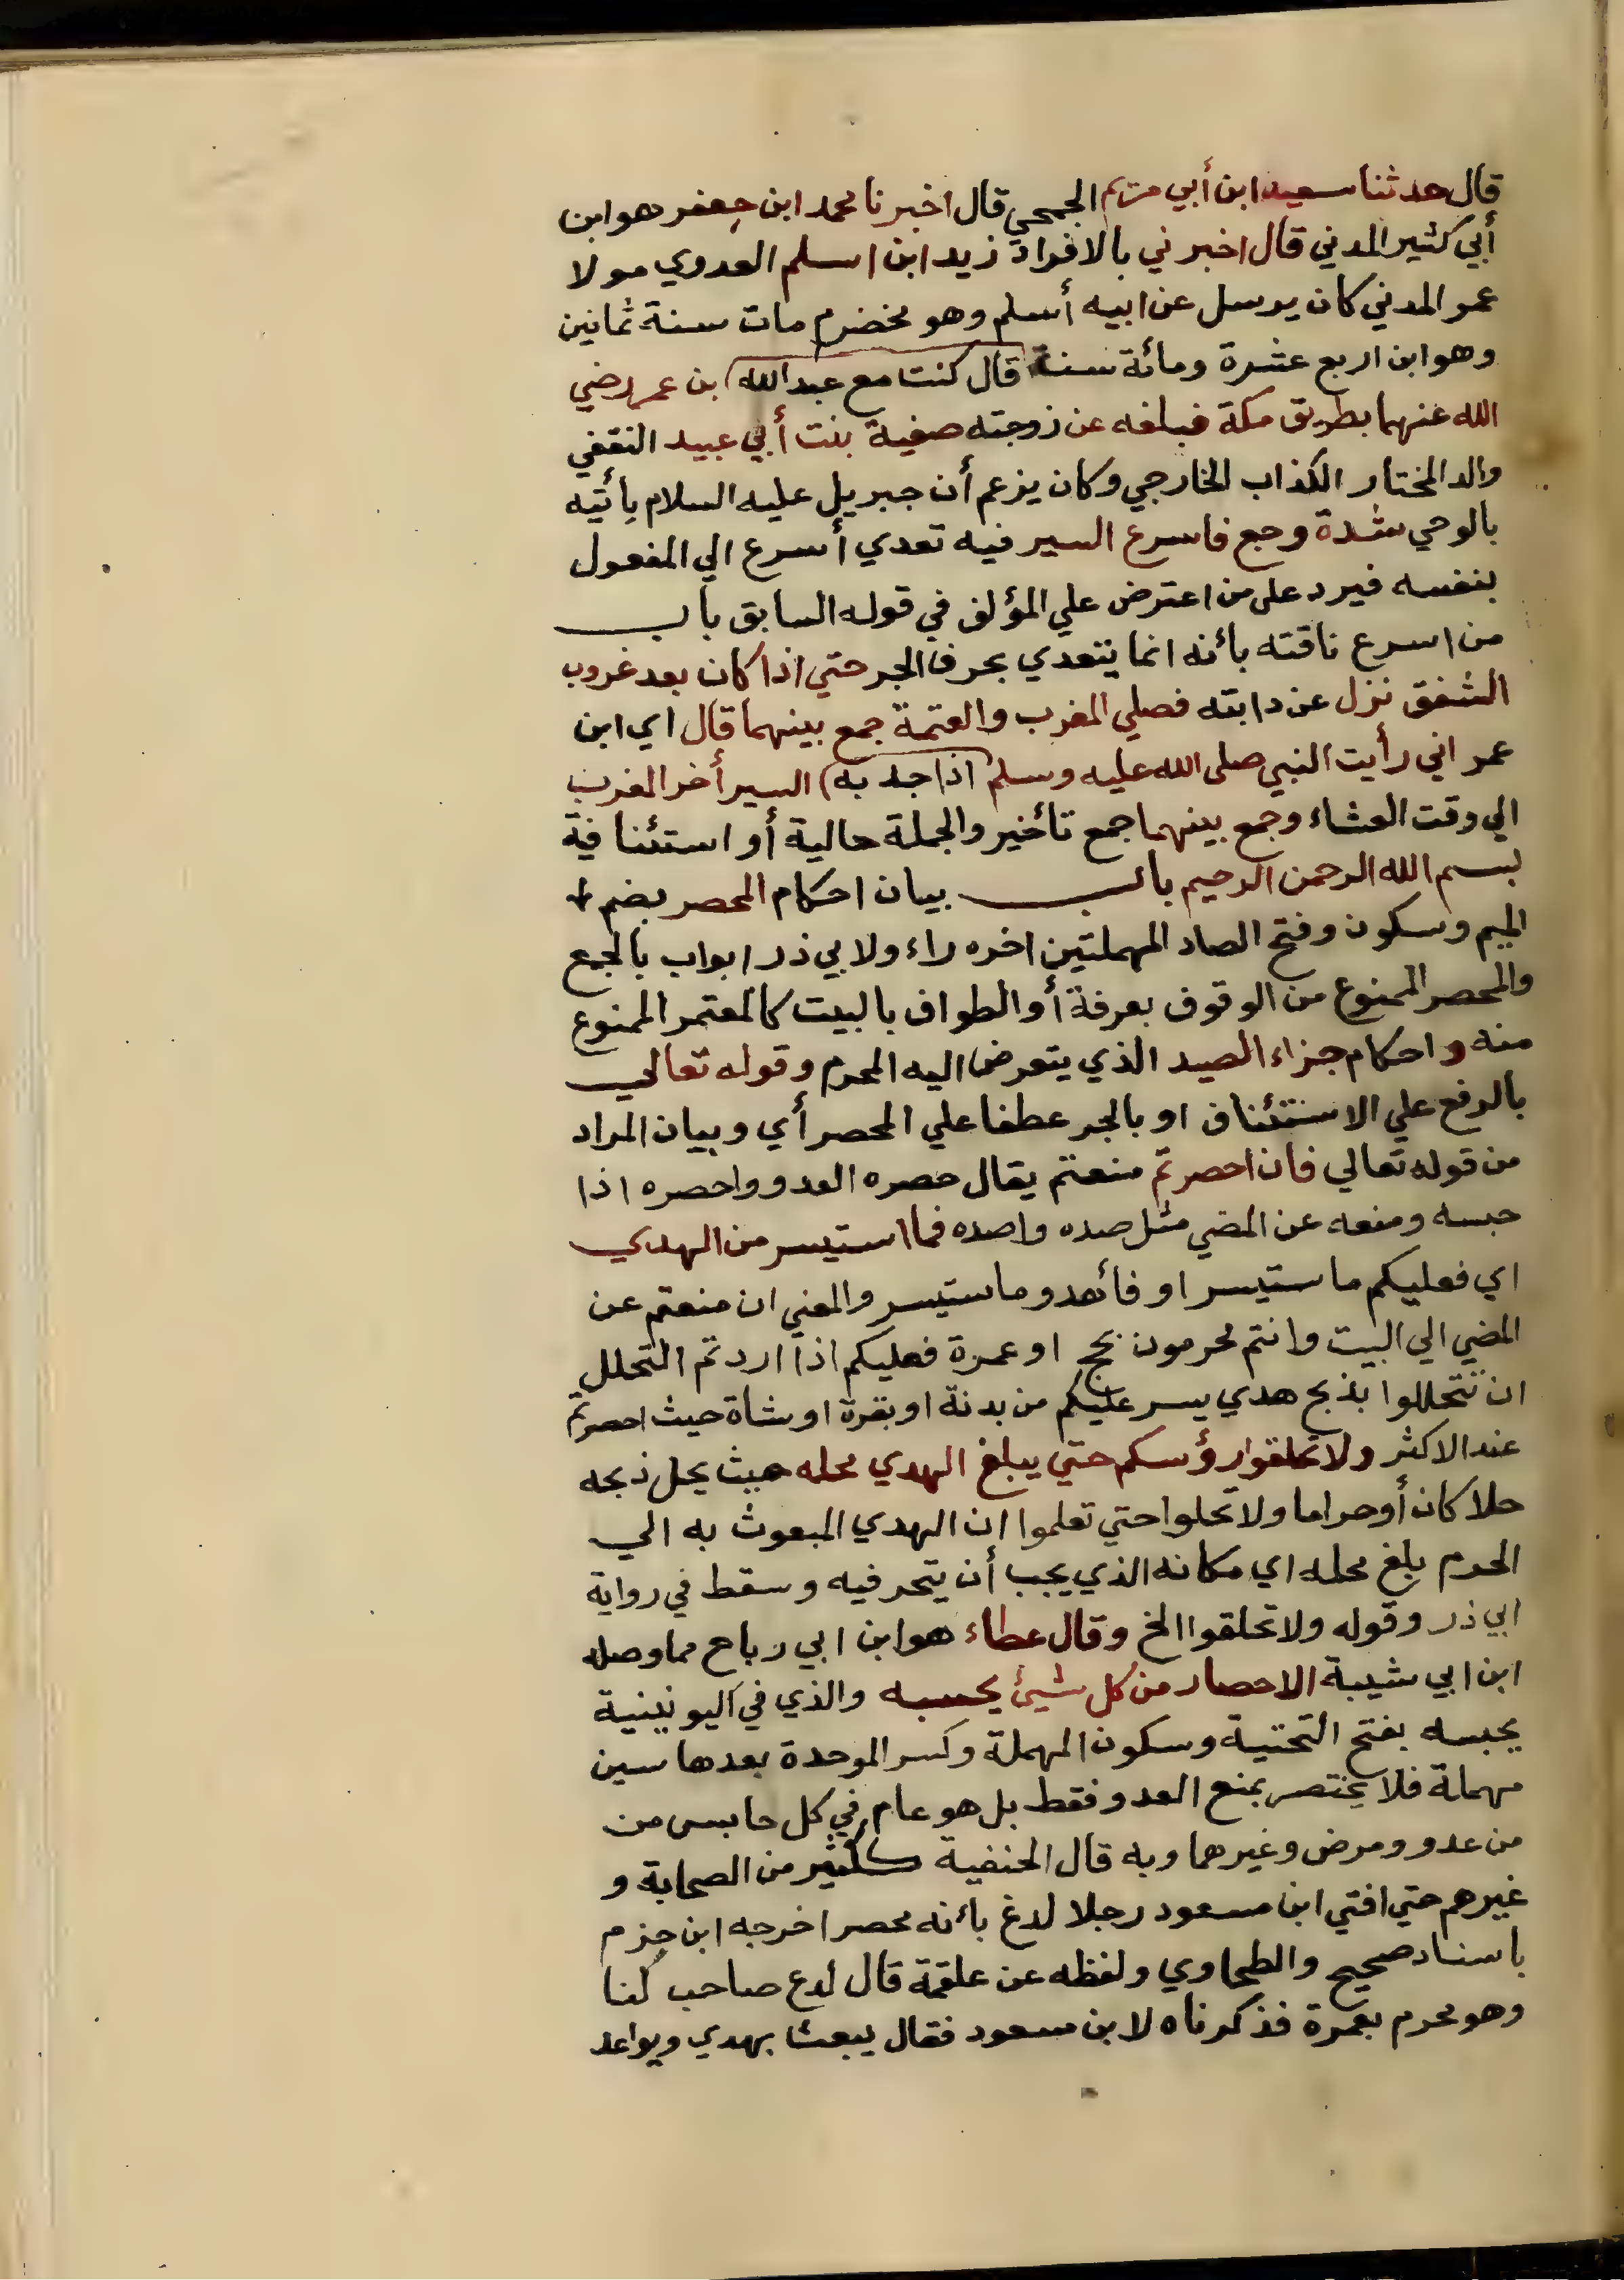 قال حدثنا سعيد ابن أبي مريم الجمحي قال اخبرنا محمد ابن جعفر هو ابن
أبي كثير المدني قال اخبرني بالافراد زيد ابن اسلم العدوي مولا
عمر المدني كان يرسل عن ابيه أسلم وهو مخضرم مات سنة ثمانين
وهو ابن اربع عشرة ومائة سنة قال كنت مع عبد الله ابن عمر رضي
الله عنهما بطريق مكة فبلغه عن زوجته صفية بنت أبي عبيد الثقفي
والد المختار الكذاب الخارجي وكان يزعم أن جبريل عليه السلام يأتيه
بالوحي شدة وجع فاسرع السير فيه تعدي أسرع الي المفعول
بنفسه فيرد على من اعترض علي المؤلف في قوله السابق باب
من اسرع ناقته بأنه انما يتعدي بحرف الجر حتي اذا كان بعد غروب
الشفق نزل عن دابته فصلي المغرب والعتمة جمع بينهما قال اي ابن
عمر اني رأيت النبي صلى الله عليه وسلم اذا جد به السير أخر المغرب
الي وقت العشاء وجمع بينهما جمع تأخير والجملة حالية أو استئنافية
بسم الله الرحمن الرحيم باب بيان احكام المحصر بضم
الميم وسكون وفتح الصاد المهملتين اخره راء ولابي ذر ابواب بالجمع
والمحصر الممنوع من الوقوف بعرفة أو الطواف بالبيت كالمعتمر الممنوع
منه واحكام جزاء الصيد الذي يتعرض اليه المحرم وقوله تعالي
بالرفع علي الاستئناف او بالجر عطفا علي المحصر أي وبيان المراد
من قوله تعالي فان احصرتم منعتم يقال حصره العدو واحصره اذا
حبسه ومنعه عن المضي مثل صده واصده فما استيسر من الهدي
اي فعليكم ما ستيسر او فأهدو ما ستيسر والمعني ان منعتم عن
المضي الي البيت وانتم محرمون بحج او عمرة فعليكم اذا اردتم التحلل
ان تتحللوا بذبح هدي يسر عليكم من بدنة او بقرة او شاة حيث احصرتم
عند الاكثر ولا تحلقوا رؤسكم حتي يبلغ الهدي محله حيث يحل ذبحه
حلا كان أو حراما ولا تحلوا حتي تعلموا ان الهدي المبعوث به الي
الحرم بلغ محله اي مكانه الذي يجب أن يتحر فيه وسقط في رواية
ابي ذر وقوله ولا تحلقوا الخ وقال عطاء هو ابن ابي رباح مما وصله
ابن ابي شيبة الاحصار من كل شيئ يحسبه والذي في اليونينية
يحبسه بفتح التحتية وسكون المهملة وكسر الموحدة بعدها سين
مهملة فلا يختصر بمنع العدو فقط بل هو عام في كل حابس من
من عدو ومرض وغيرهما وبه قال الحنفية ككثير من الصحابة و
غيرهم حتي افتي ابن مسعود رجلا لدغ بأنه محصر اخرجه ابن حزم
باسناد صحيح والطحاوي ولفظه عن علقمة قال لدع صاحب لنا
وهو محرم بعمرة فذكرناه لابن مسعود فقال يبعث بهدي ويواعد